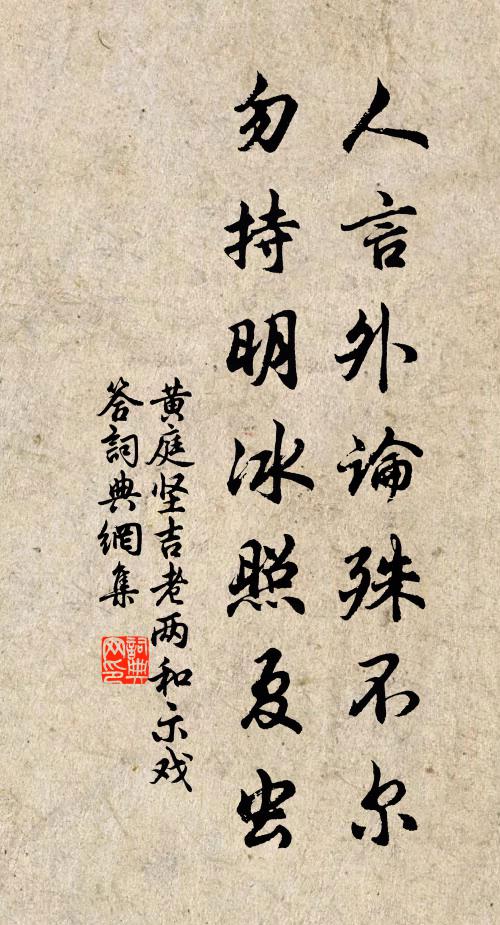 人言外論殊不尔
勿持明冰照夏虫
黄庭坚吉老两和示戏
答詞典網集
詞典网印